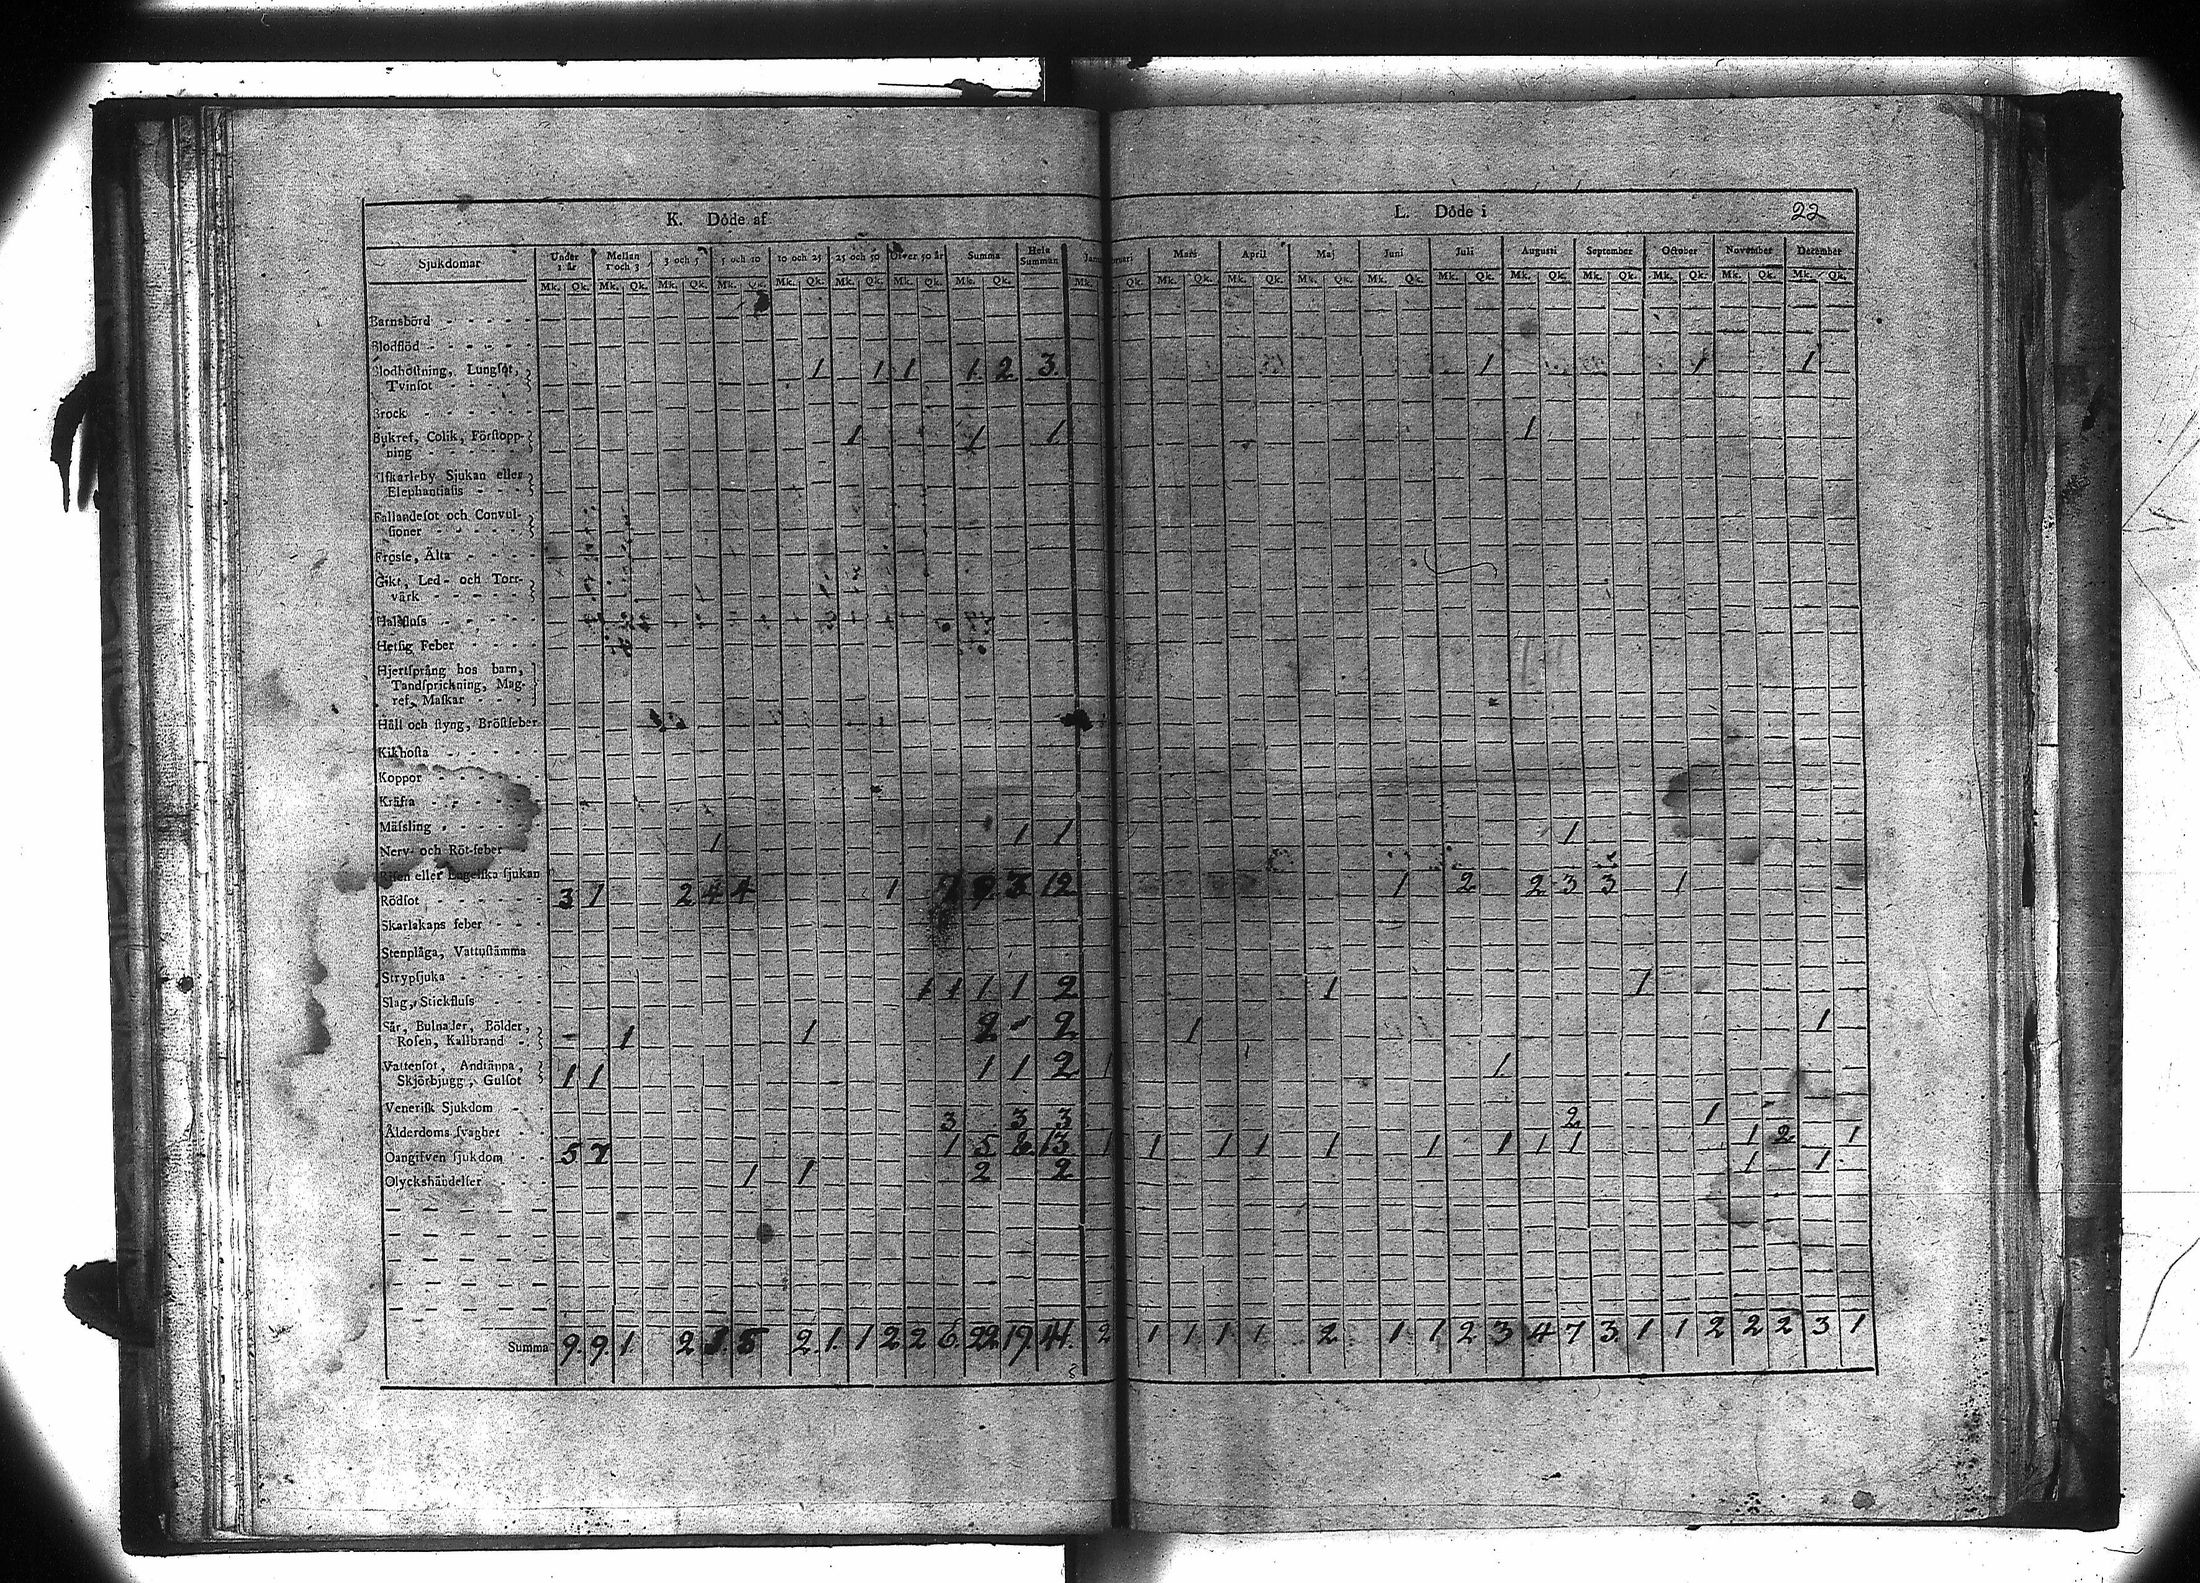 K. Döde af
L. Döde i
22
Sjukdomar Under 1 år Mellan 1 och 3 3 och 5 5 och 10 10 och 25 25 och 50 Öfver 50 år Summa Hela Summan Mars April Maj Juni Juli Augusti September October November December
Mk. Qk. Mk. Qk. Mk. Qk. Mk. Qk. Mk. Qk. Mk. Qk. Mk. Qk. Mk. Qk. Mk. Qk. Mk. Qk. Mk. Qk. Mk. Qk. Mk. Qk. Mk. Qk. Mk. Qk. Mk. Qk. Mk. Qk. Mk. Qk. Mk. Qk.
Barnsbörd
Blodflöd
Blodhöſtning, Lungſot, 1 1 1 1 2 3 1 1 1
Tvinſot
Brock
Bukref, Colik, Förſtopp- 1 1 1 1
ning
Elfkarleby Sjukan eller
Elephantiaſis
Fallandeſot och Convul-
ſioner
Froſſe, Älta
Gikt, Led- och Torr-
värk
Halsfluſs
Hetſig Feber
Hjertſprång hos barn,
Tandſprickning, Mag-
ref, Maſkar
Håll och ſtyng, Bröſtfeber
Kikhoſta
Koppor
Kräfta
Mäſsling
Nerv- och Röt-feber 1 1 1 1
Riſen eller Engelſka ſjukan
Rödſot 3 1 2 4 4 1 3 12 1 2 2 3 3 1
Skarlakans feber
Stenplåga, Vattuſtämma
Strypſjuka
Slag, Stickfluſs 1 1 1 1 2 1 1
Sår, Bulnader, Bölder,
Roſen, Kallbrand 1 1 2 2 1 1
Vattenſot, Andtäppa,
Skjörbjugg, Gulſot 1 1 1 1 2 1 1
Veneriſk Sjukdom
Ålderdoms ſvaghet 3 3 3 2 1
Oangifven ſjukdom 5 7 1 5 8 13 1 1 1 1 1 1 1 1 1 1 2 1
Olyckshändelſer 1 1 2 2 1 1
Summa 9. 9. 1 2 5 2. 1. 1 2 2 6. 22 19. 41. 2 1 1 1 1 2 1 1 2 3 4 7 3 1 1 2 2 2 3 1